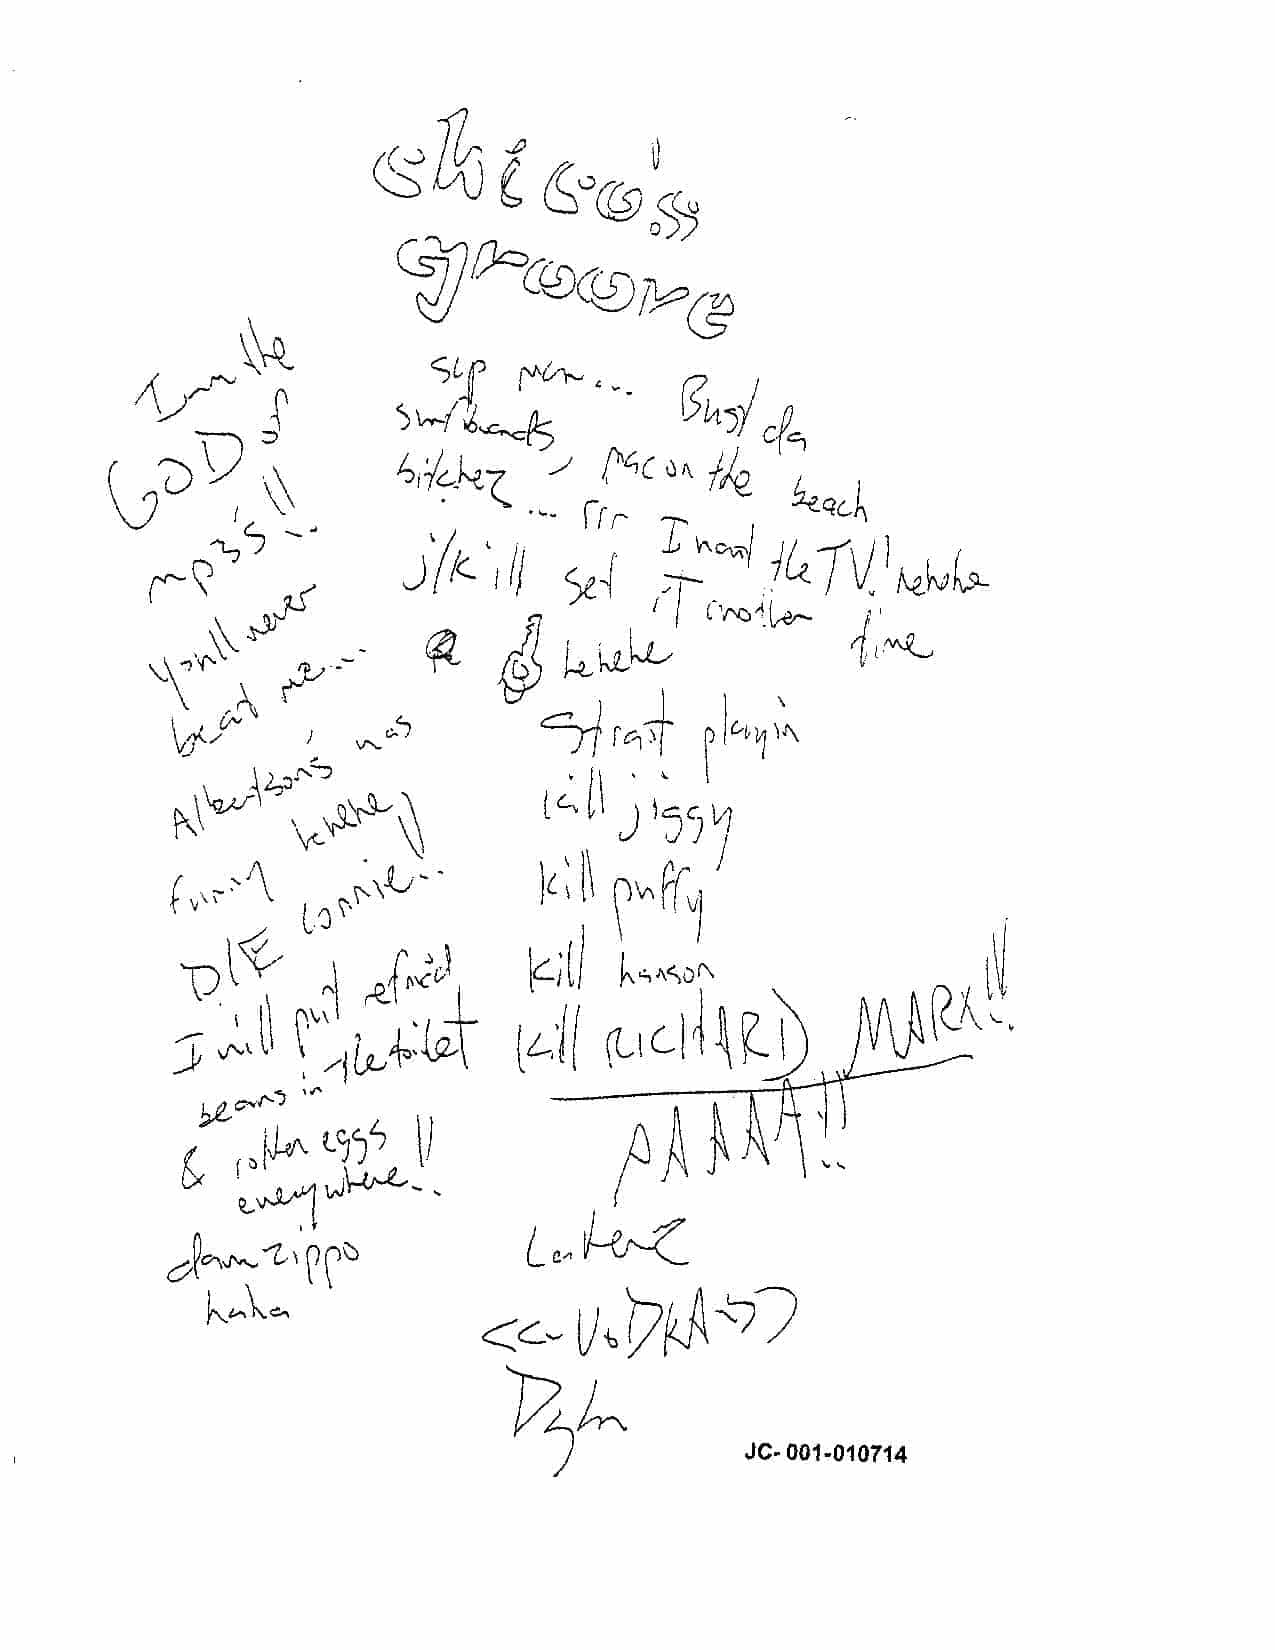 chico's
groove
sup man... Bust da
surfboards, mac on the beach
bitchez ... rrr I want the TV! hehehe
j/k ill set iT another time
hehehe
Strait playin
kill jiggy
kill puffy
kill hanson
kill RICHARD MARX!!
AAAA!!
Laterz
<<-VoDKA->>
Dyln
Im the
GOD of
mp3's!!
You'll never
beat me...
Albertson's was
funny hehehe
DIE connie..
I will put refried
beans in the toilet
& rotten eggs !!
everywhere..
damn zippo
haha
JC-001-010714